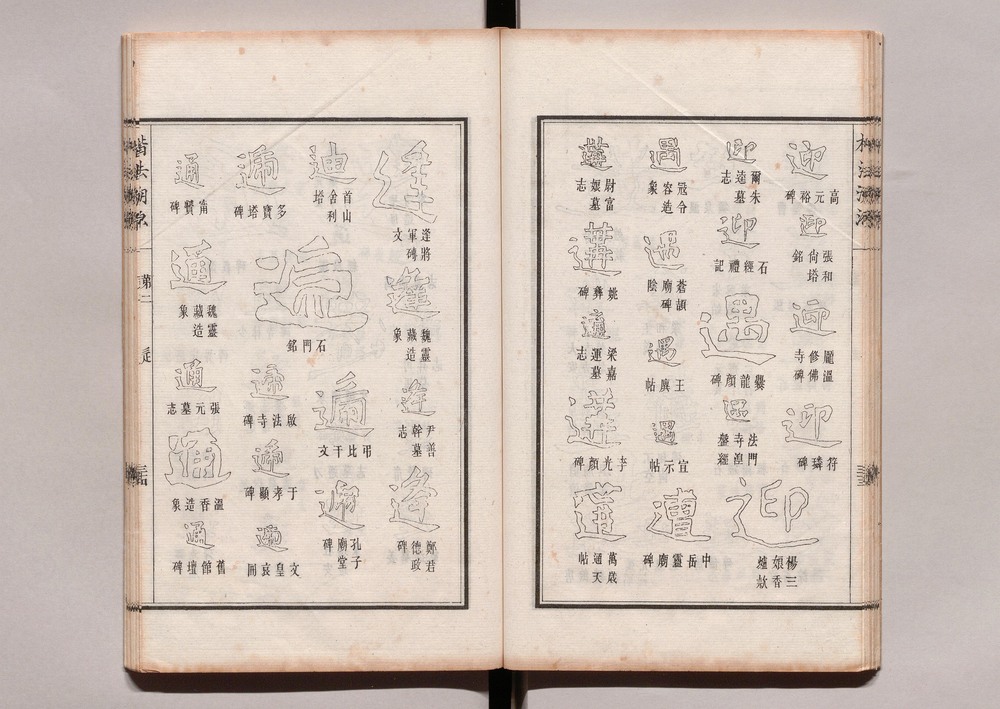 迎
高元裕碑
迎
張和尚塔銘
迎
麗溫修佛寺碑
迎
符璘碑
迎
爾朱逺墓志
迎
石經禮記
遇
爨龍顏碑
遇
法門寺湼盤經
迎
楊三娘香爐欵
遇
冦令容造象
遇
蒼頡廟碑陰
遇
王廙帖
遇
宜示帖
遭
中岳靈廟碑
遘
尉富娘墓志
遘
姚彝碑
遘
梁嘉運墓志
遘
李光顏碑
遘
萬歲通天帖
逢
逢將軍磚文
逢
魏靈藏造象
逢
尹善幹墓志
逢
鄭君德政碑
迪
首山舍利塔
遞
多寶塔碑
遞
石門銘
遞
弔比干文
遞
孔子廟堂碑
遞
啟法寺碑
遞
于孝顯碑
遞
文皇哀冊
通
甯贙碑
通
魏靈藏造象
通
張元墓志
通
溫香造象
通
舊館壇碑
楷法溯源
弟二
辵